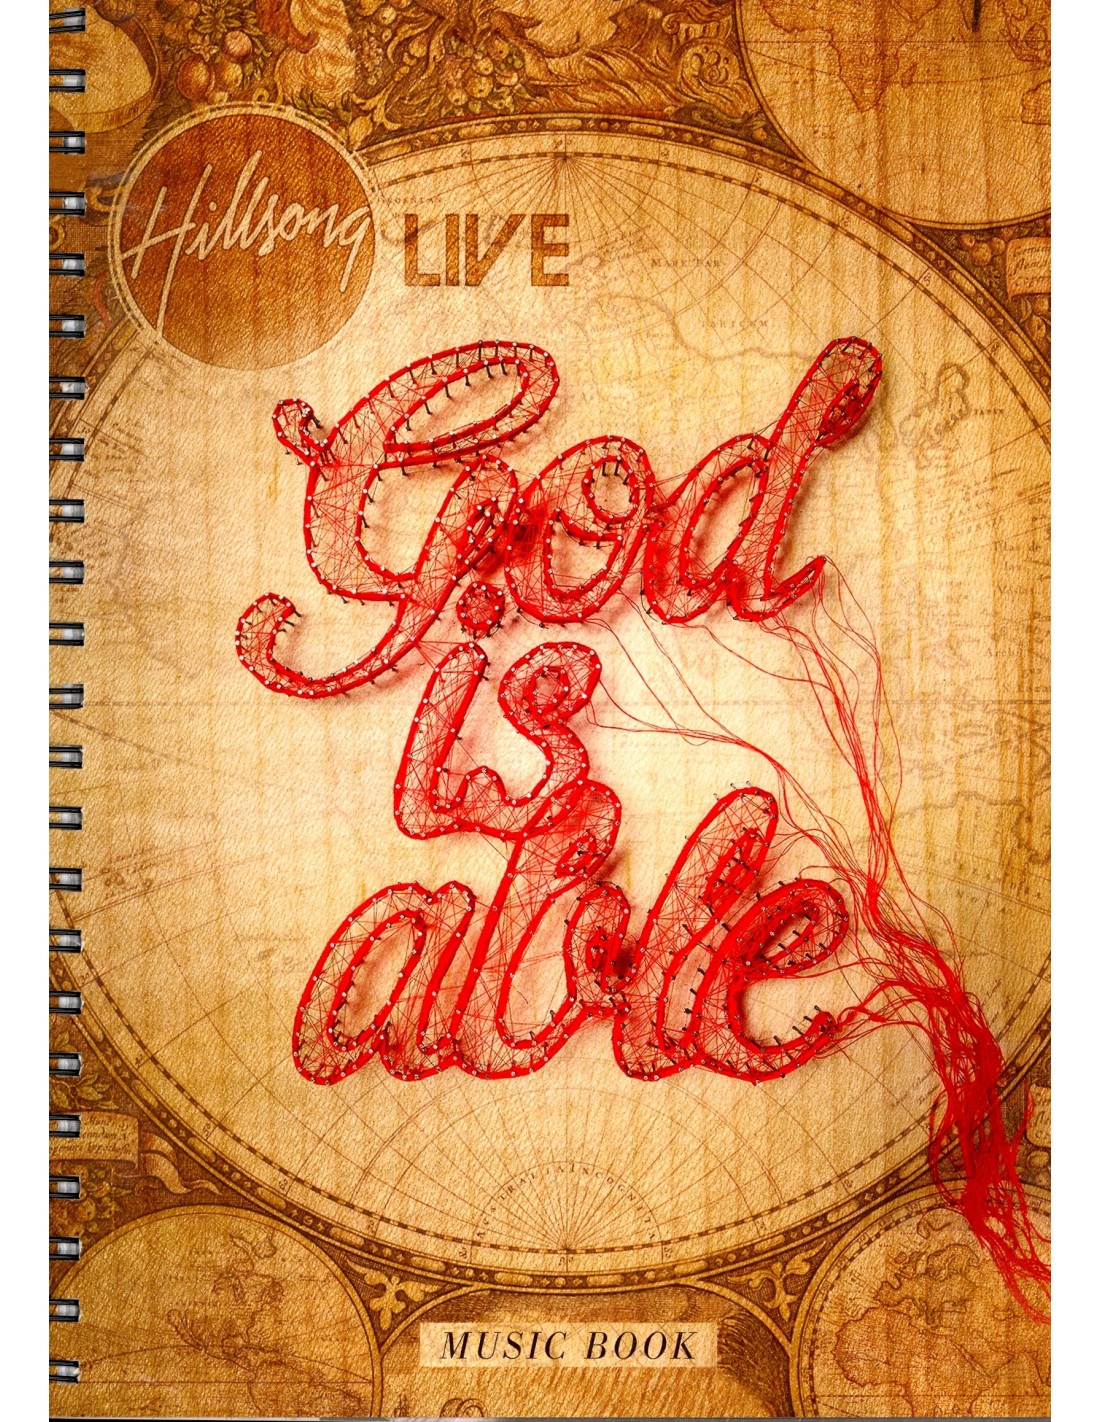 Hillsong LIVE
God
is
able
JAPAN
MUSIC BOOK